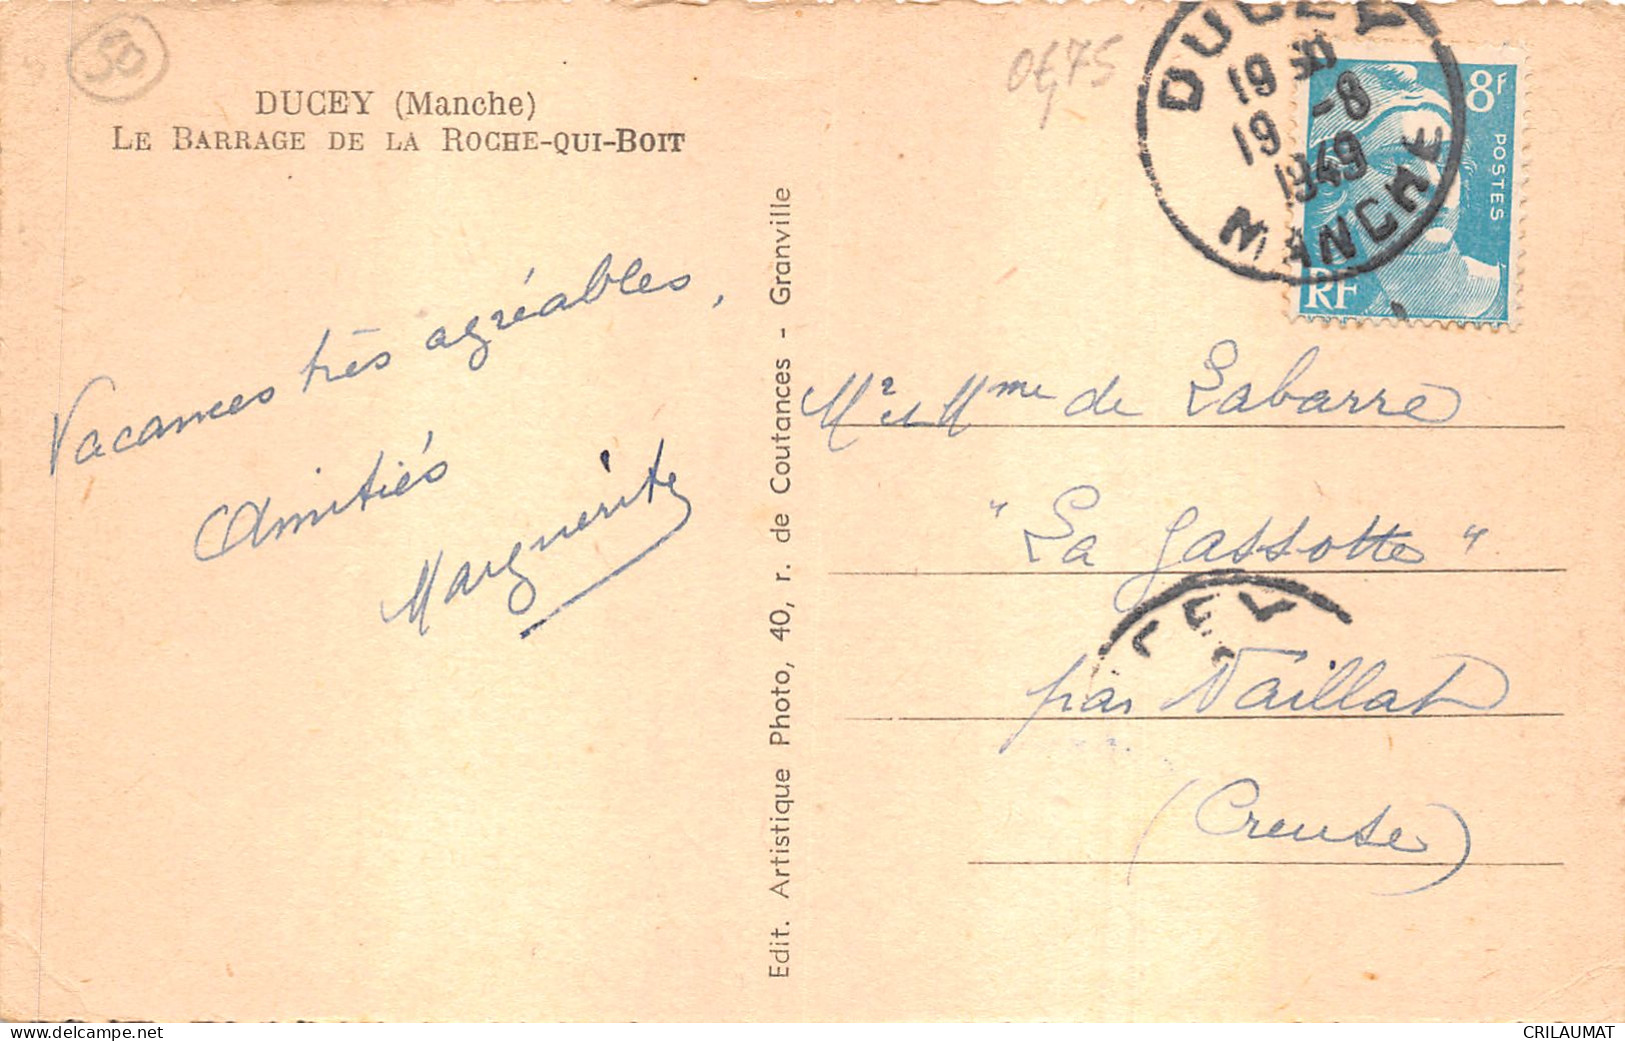 50
DUCEY (Manche)
LE BARRAGE DE LA ROCHE-QUI-BOIT
Vacances très agréables,
Amitiés
Marguerite
Edit. Artistique Photo, 40, r. de Coutances - Granville
0€75
DUCEY
19 30
19 -8
1949
MANCHE
8F
POSTES
RF
Mr et Mme de Labarre
"La Gassotte"
par Naillat
(Creuse)
CRILAUMAT